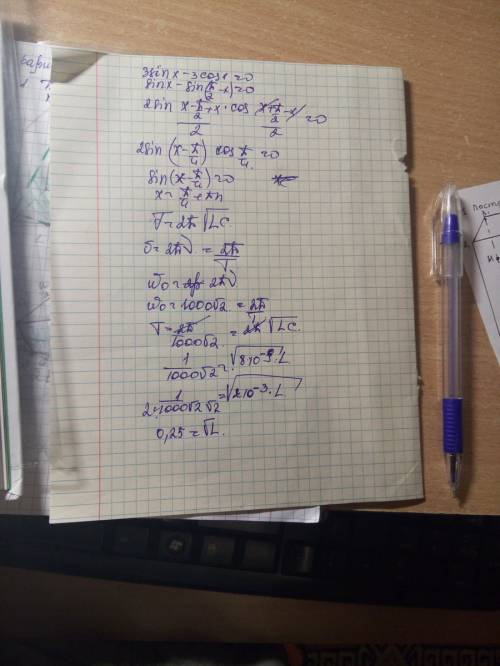 3sinx-3cosx=0
sinx-sin(π/2-x)=0
2sin (x-π/2+x)/2 · cos (x+π/2-x)/2 =0
2sin(x-π/4) cos π/4 =0
sin(x-π/4)=0
x=π/4+πn
T=2π√LC
σ=2πν = 2π/T
ω₀= 2πν
ω₀=1000√2 = 2π/T
T=2π/1000√2 = 2π√LC
1/1000√2 = √8·10⁻⁵·L
1/2·1000√2√2 = √2·10⁻³·L
0,25=√L.
вари
1
2
пост